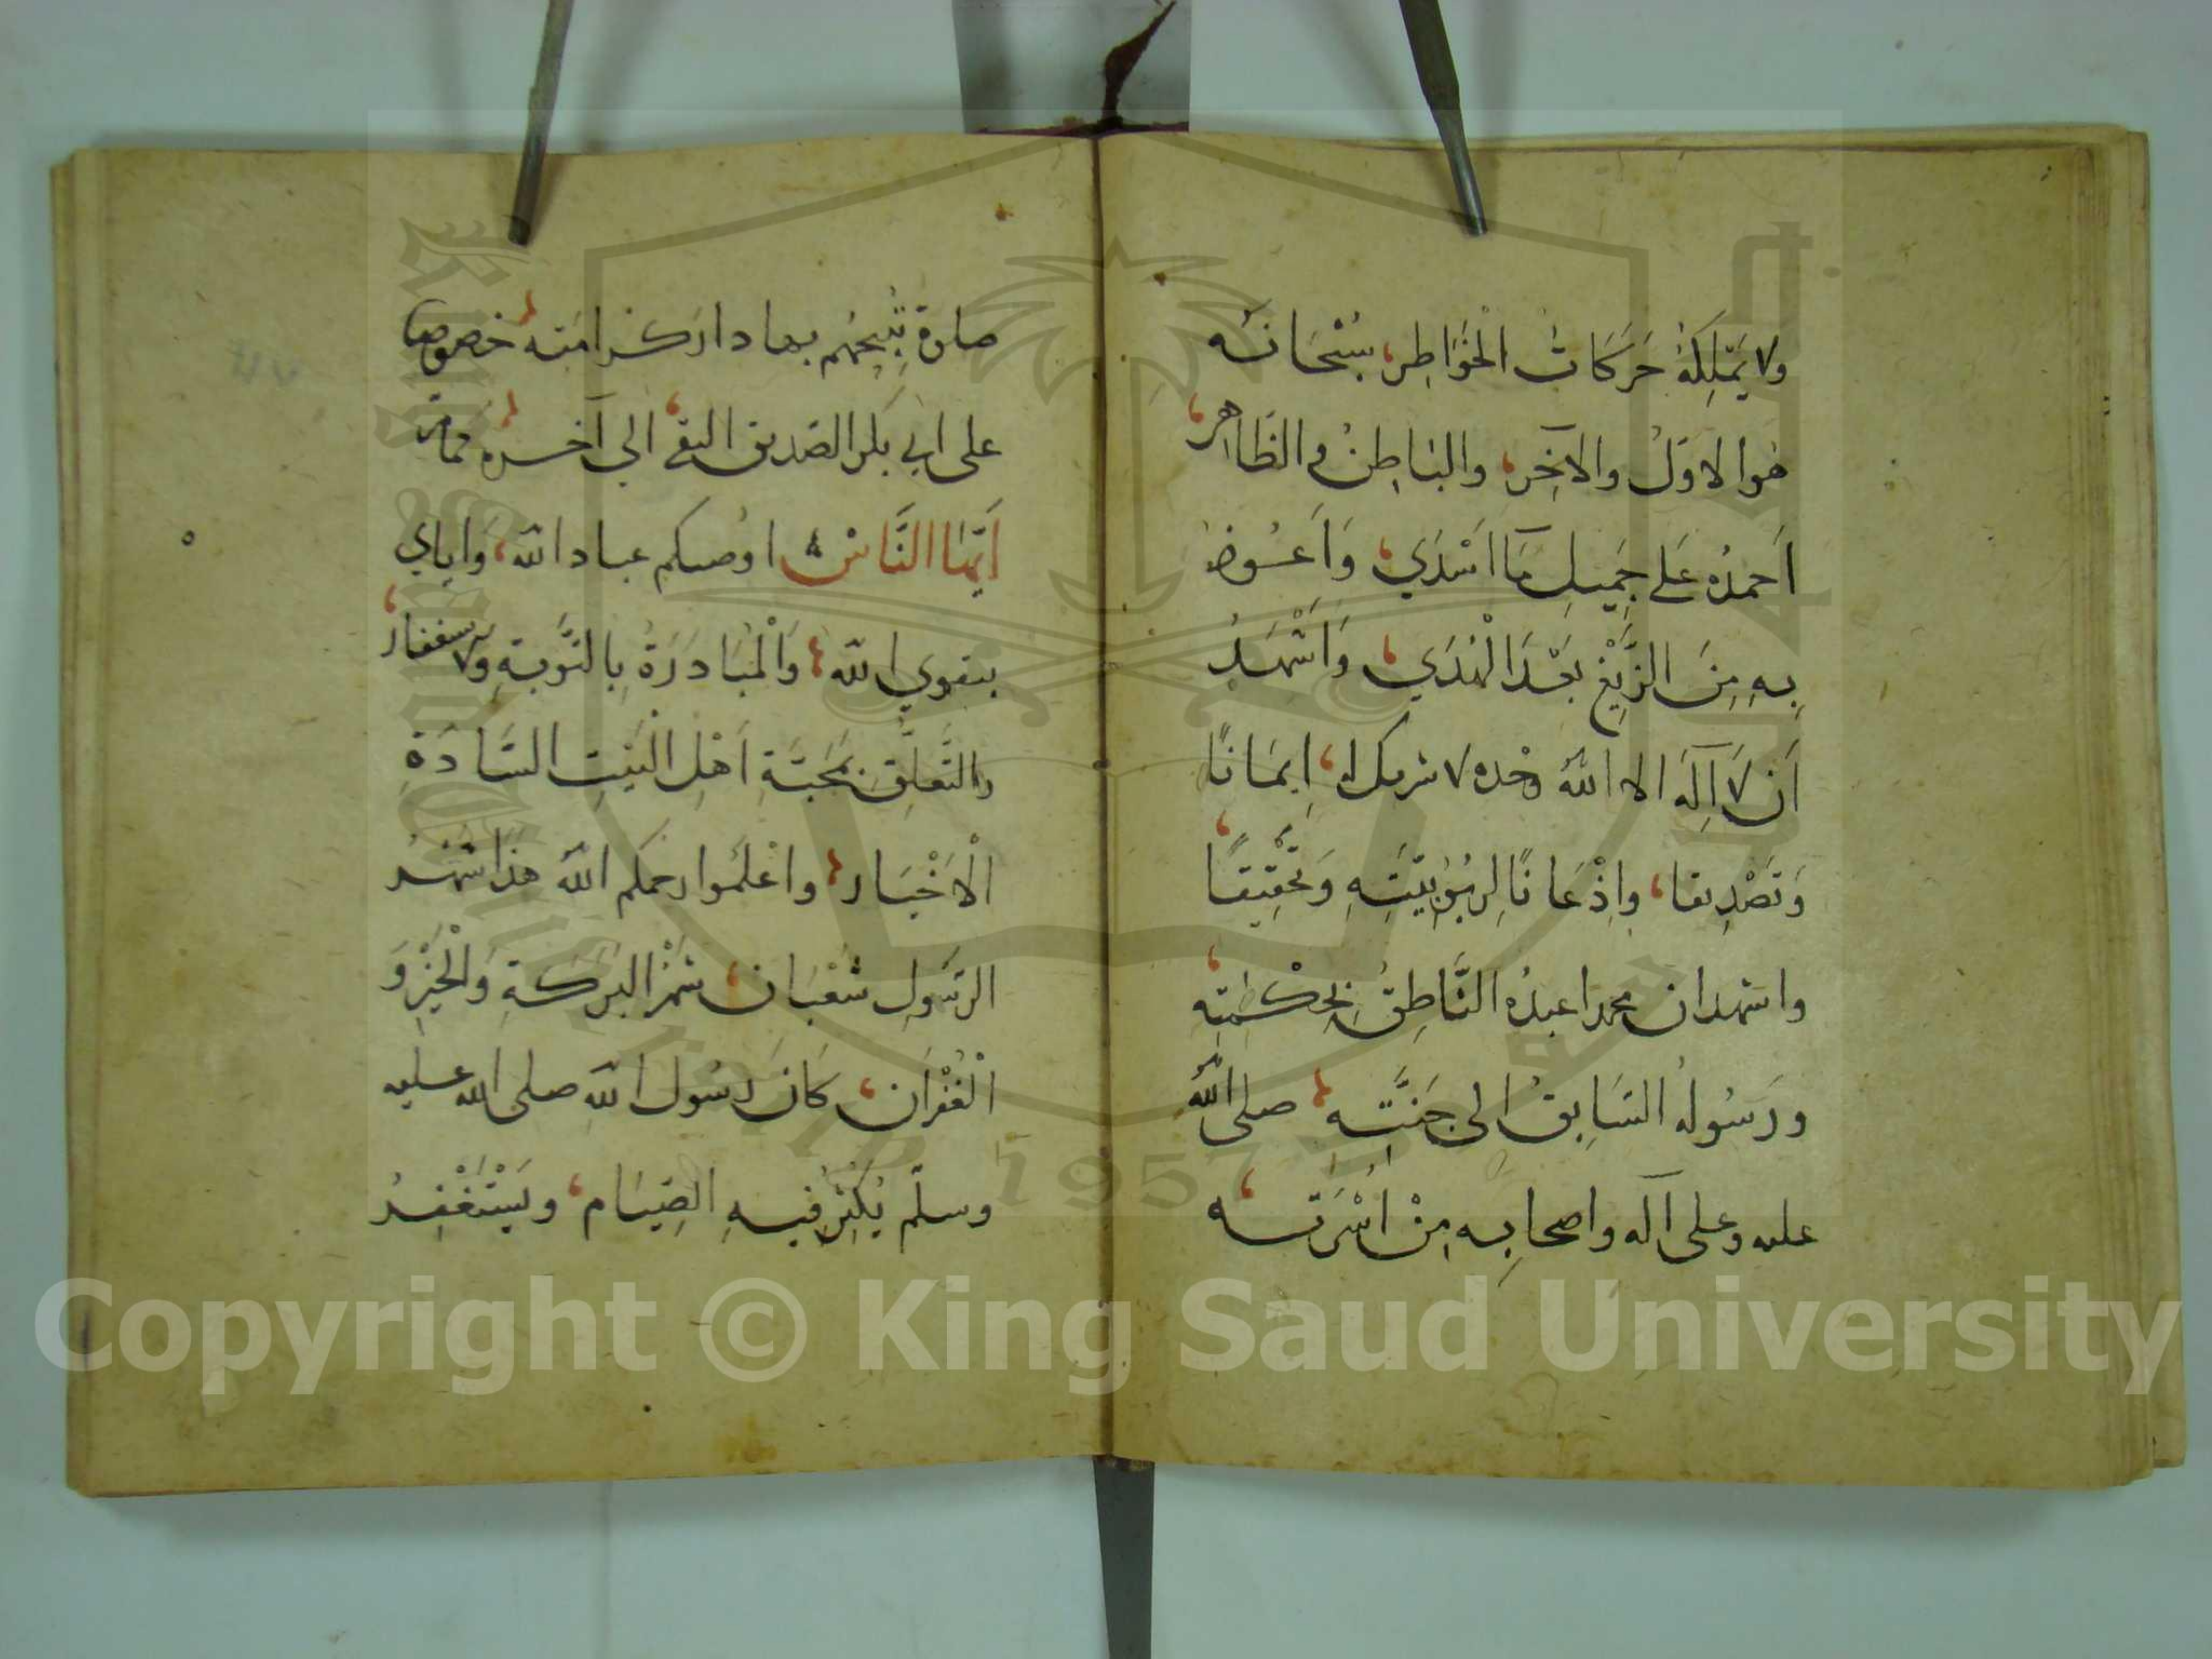 ولا يَمتلِكهُ حَركَاتُ الْخَوَاطِر، سُبْحَانَه
هُوا لاوّلُ والآخِر، والبَاطِنُ والظَاهِر،
اَحمدُه عَلى جَمِيلِ مَآ اَسْدَي، وَاَعُوذ
بِهِ مِنَ الزَّيْغِ بَعْدَ الْهُدَي، وَاَشْهَدُ
اَن لَا اِلَه الا اللهُ وحْده لا شريك له، اِيمَانًا
وَتَصْدِيقا، واِذْعَانًا لِربُوبِيّتَهِ وَتَحْقِيقًا،
واشهدان محمدا عبدُه النَّاطِقُ بحِكْمَتِه،
ورَسُولهُ السَابِقُ الى جَنَّتِه، صلى الله
عليه وعلى آله واصحابِه مِنْ اُسْرَتِه،
صلوة تُبِيحُهُم بها دار كرامته، خصوصا
على ابي بكر الصّديق التقي، الي آخره،
اَيّهَا النَّاسْ اوُصيكم عباد الله، وَاياي
بتقوي الله، وَالْمُبَادَرَةُ بِالتَّوبَةِ والاستغفار،
والتَّعلّقِ بمَحَبَّةِ اَهْلِ الْبَيْتِ السَّادَةِ
الْاَخْيَار، واعْلَمُوا رحمكم الله هذا شَهْرُ
الرسَولِ شَعْبَان، شَهْرُ البَركَةِ وَالْخَيْرِ وَ
الْغُفْرَان، كَانَ رسُول الله صلى الله عليه
وسلّم يُكْثِرُ فِيهِ الصِّيَام، ويَسْتَغْفِرُ
Copyright © King Saud University
1957